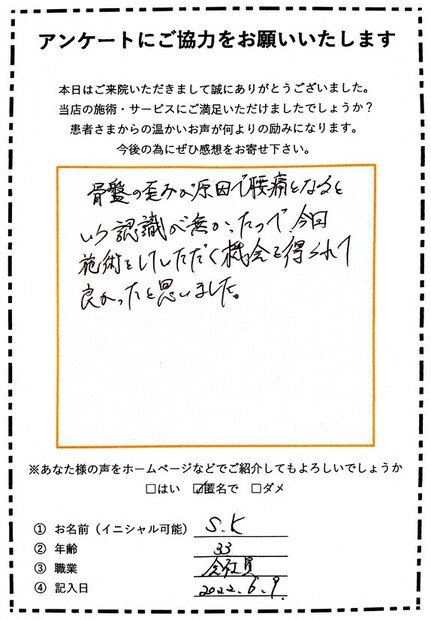 アンケートにご協力をお願いいたします
本日はご来院いただきまして誠にありがとうございました。
当店の施術・サービスにご満足いただけましたでしょうか？
患者さまからの温かいお声が何よりの励みになります。
今後の為にぜひ感想をお寄せ下さい。
骨盤の歪みが原因で腰痛となると
いう認識が無かったので今回
施術をしていただく機会を得られて
良かったと思いました。
※あなた様の声をホームページなどでご紹介してもよろしいでしょうか
□はい ☑匿名で □ダメ
① お名前（イニシャル可能） S.K
② 年齢 33
③ 職業 会社員
④ 記入日 2022.6.9.